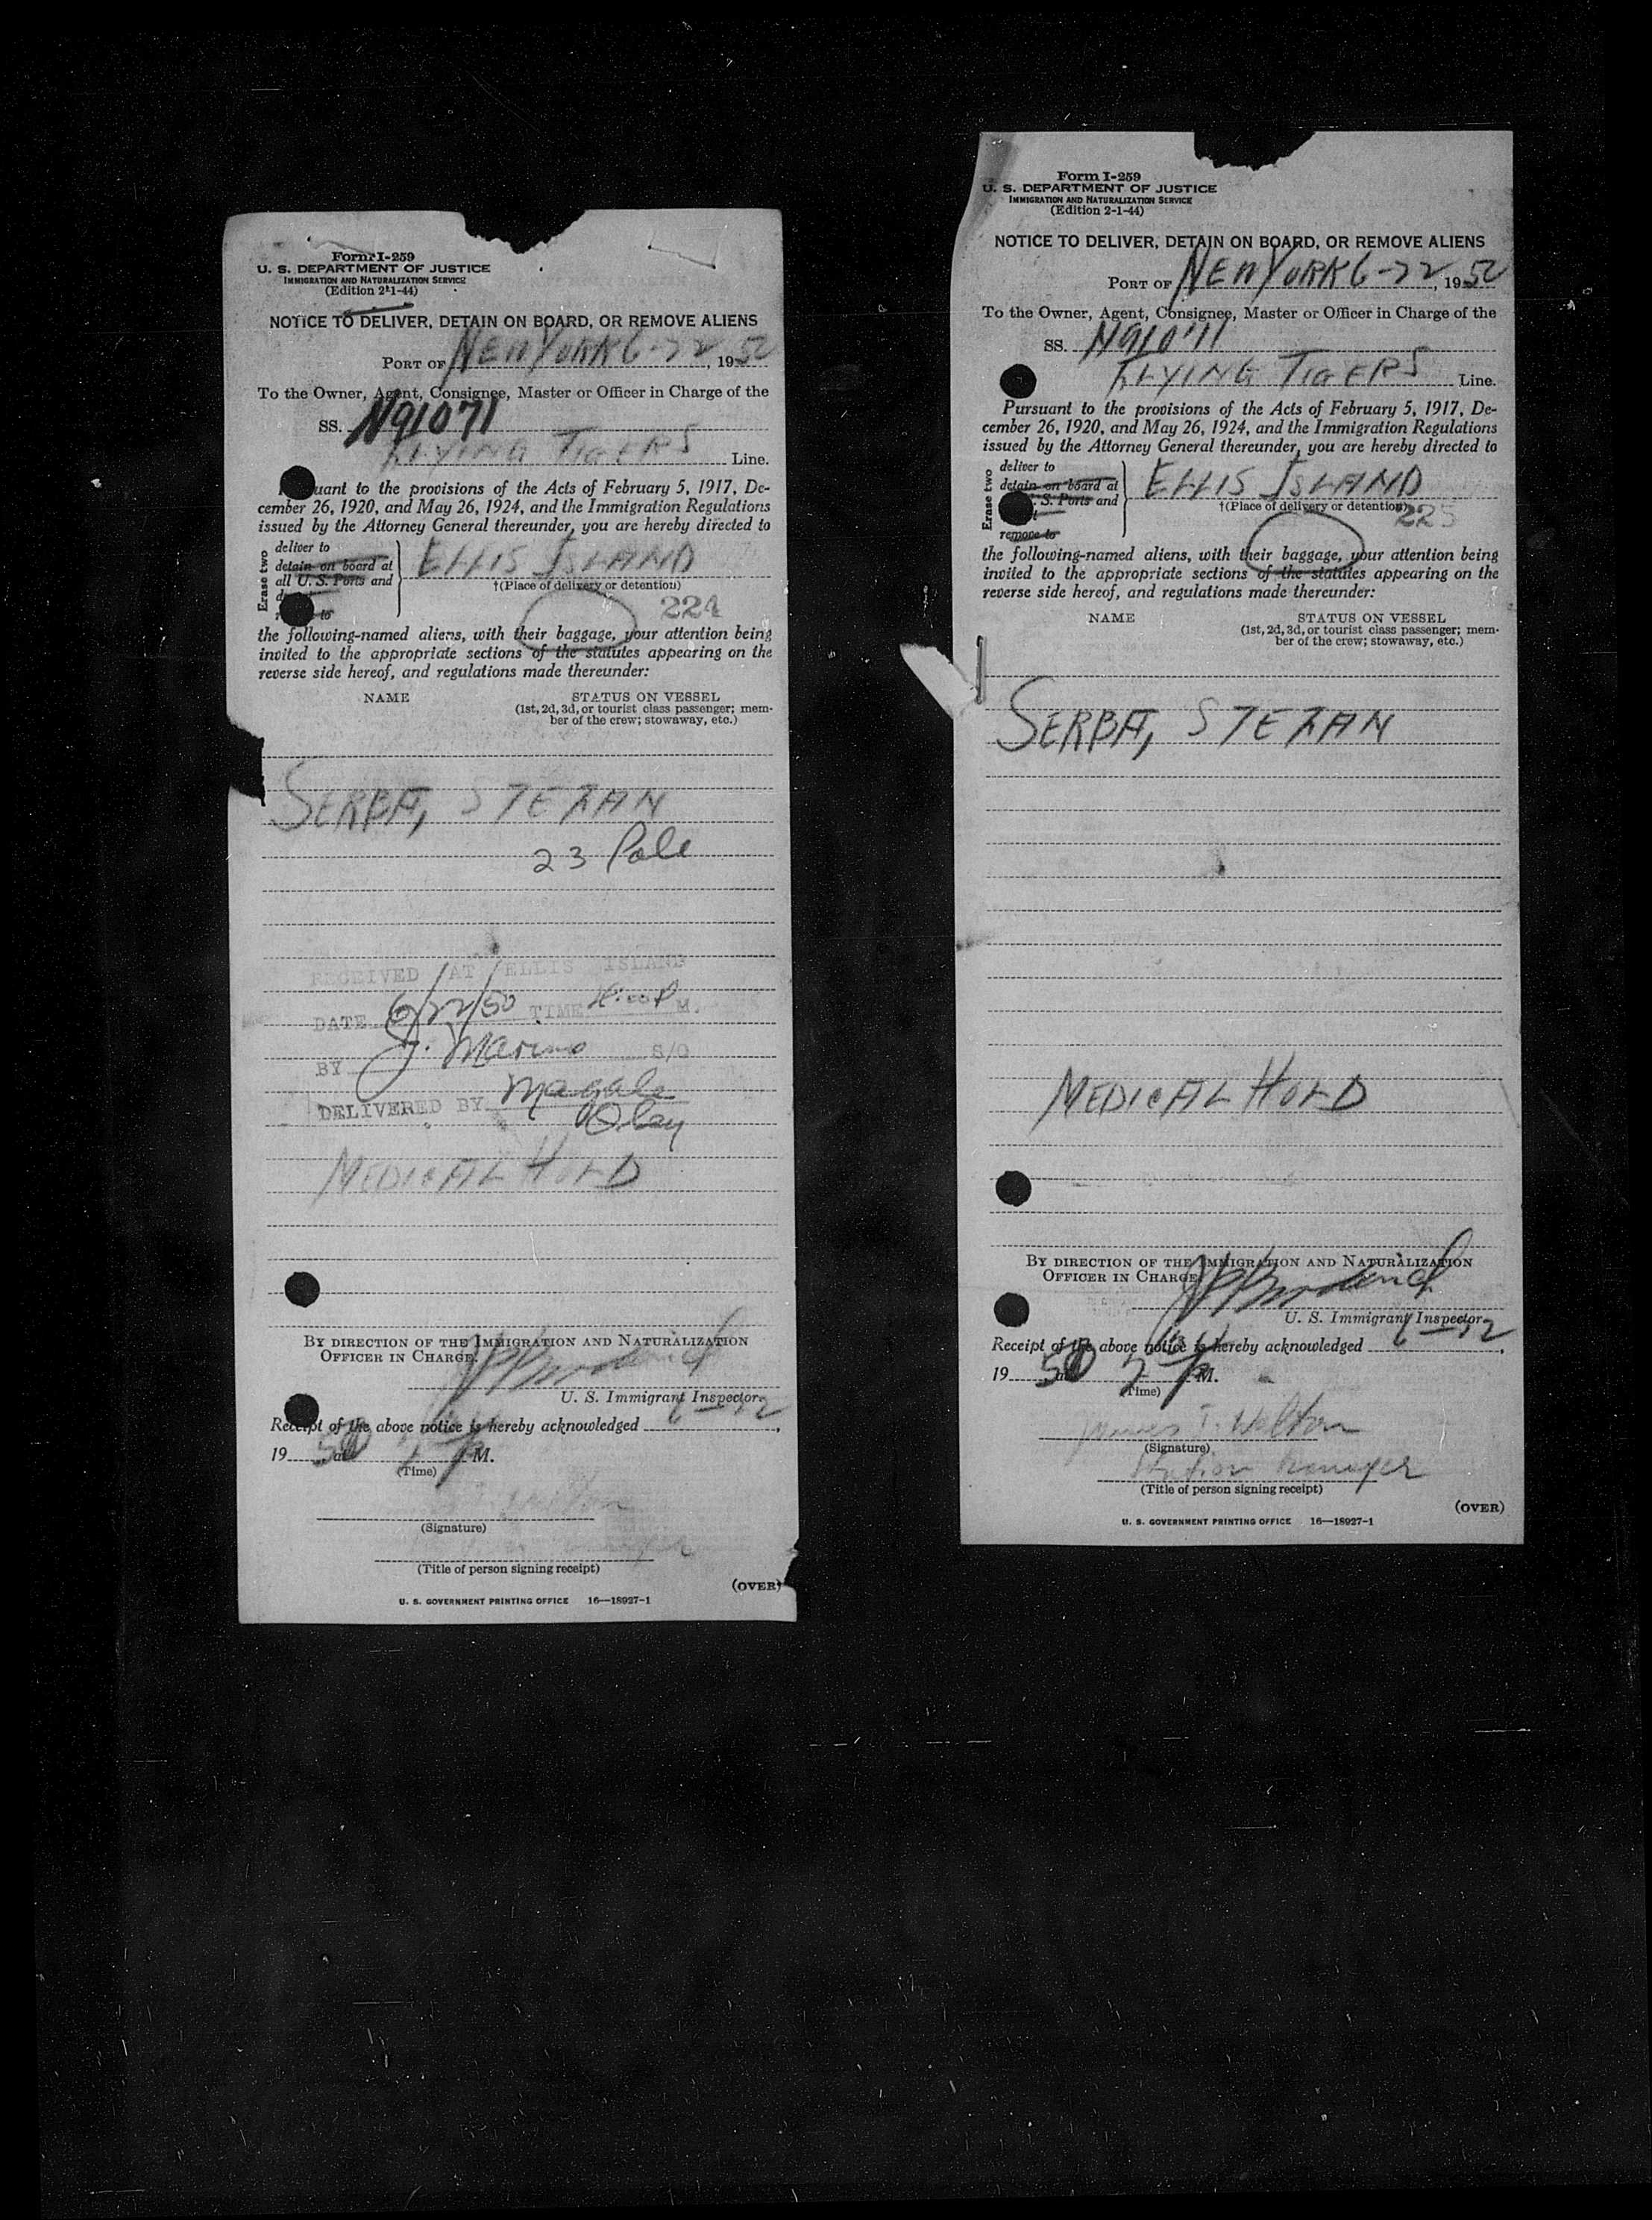 Form I-259
U. S. DEPARTMENT OF JUSTICE
IMMIGRATION AND NATURALIZATION SERVICE
(Edition 2-1-44)
NOTICE TO DELIVER, DETAIN ON BOARD, OR REMOVE ALIENS
PORT OF NEW YORK 6-22, 1950
To the Owner, Agent, Consignee, Master or Officer in Charge of the
SS. N91071
FLYING TIGERS Line.
uant to the provisions of the Acts of February 5, 1917, De-
cember 26, 1920, and May 26, 1924, and the Immigration Regulations
issued by the Attorney General thereunder, you are hereby directed to
Erase two
deliver to
detain on board at
all U. S. Ports and
to
ELLIS ISLAND
†(Place of delivery or detention)
224
the following-named aliens, with their baggage, your attention being
invited to the appropriate sections of the statutes appearing on the
reverse side hereof, and regulations made thereunder:
NAME
STATUS ON VESSEL
(1st, 2d, 3d, or tourist class passenger; mem-
ber of the crew; stowaway, etc.)
SERBA, STEFAN
23 Pole
RECEIVED AT ELLIS ISLAND
DATE 6/22/50 TIME P M.
BY J. Marino S/O
DELIVERED BY
MEDICAL HOLD
BY DIRECTION OF THE IMMIGRATION AND NATURALIZATION
OFFICER IN CHARGE.
U. S. Immigrant Inspector.
Receipt of the above notice is hereby acknowledged 6-22,
19 50 at P M.
(Time)
(Signature)
(Title of person signing receipt)
(OVER)
U. S. GOVERNMENT PRINTING OFFICE 16—18927-1
Form I-259
U. S. DEPARTMENT OF JUSTICE
IMMIGRATION AND NATURALIZATION SERVICE
(Edition 2-1-44)
NOTICE TO DELIVER, DETAIN ON BOARD, OR REMOVE ALIENS
PORT OF NEW YORK 6-22, 1950
To the Owner, Agent, Consignee, Master or Officer in Charge of the
SS. N91071
FLYING TIGERS Line.
Pursuant to the provisions of the Acts of February 5, 1917, De-
cember 26, 1920, and May 26, 1924, and the Immigration Regulations
issued by the Attorney General thereunder, you are hereby directed to
Erase two
deliver to
detain on board at
S. Ports and
remove to
ELLIS ISLAND
†(Place of delivery or detention)
225
the following-named aliens, with their baggage, your attention being
invited to the appropriate sections of the statutes appearing on the
reverse side hereof, and regulations made thereunder:
NAME
STATUS ON VESSEL
(1st, 2d, 3d, or tourist class passenger; mem-
ber of the crew; stowaway, etc.)
SERBA, STEFAN
MEDICAL HOLD
BY DIRECTION OF THE IMMIGRATION AND NATURALIZATION
OFFICER IN CHARGE.
U. S. Immigrant Inspector.
Receipt of the above notice is hereby acknowledged 6-22,
19 50 at P M.
(Time)
James T. Welton
(Signature)
Station Manager
(Title of person signing receipt)
(OVER)
U. S. GOVERNMENT PRINTING OFFICE 16—18927-1